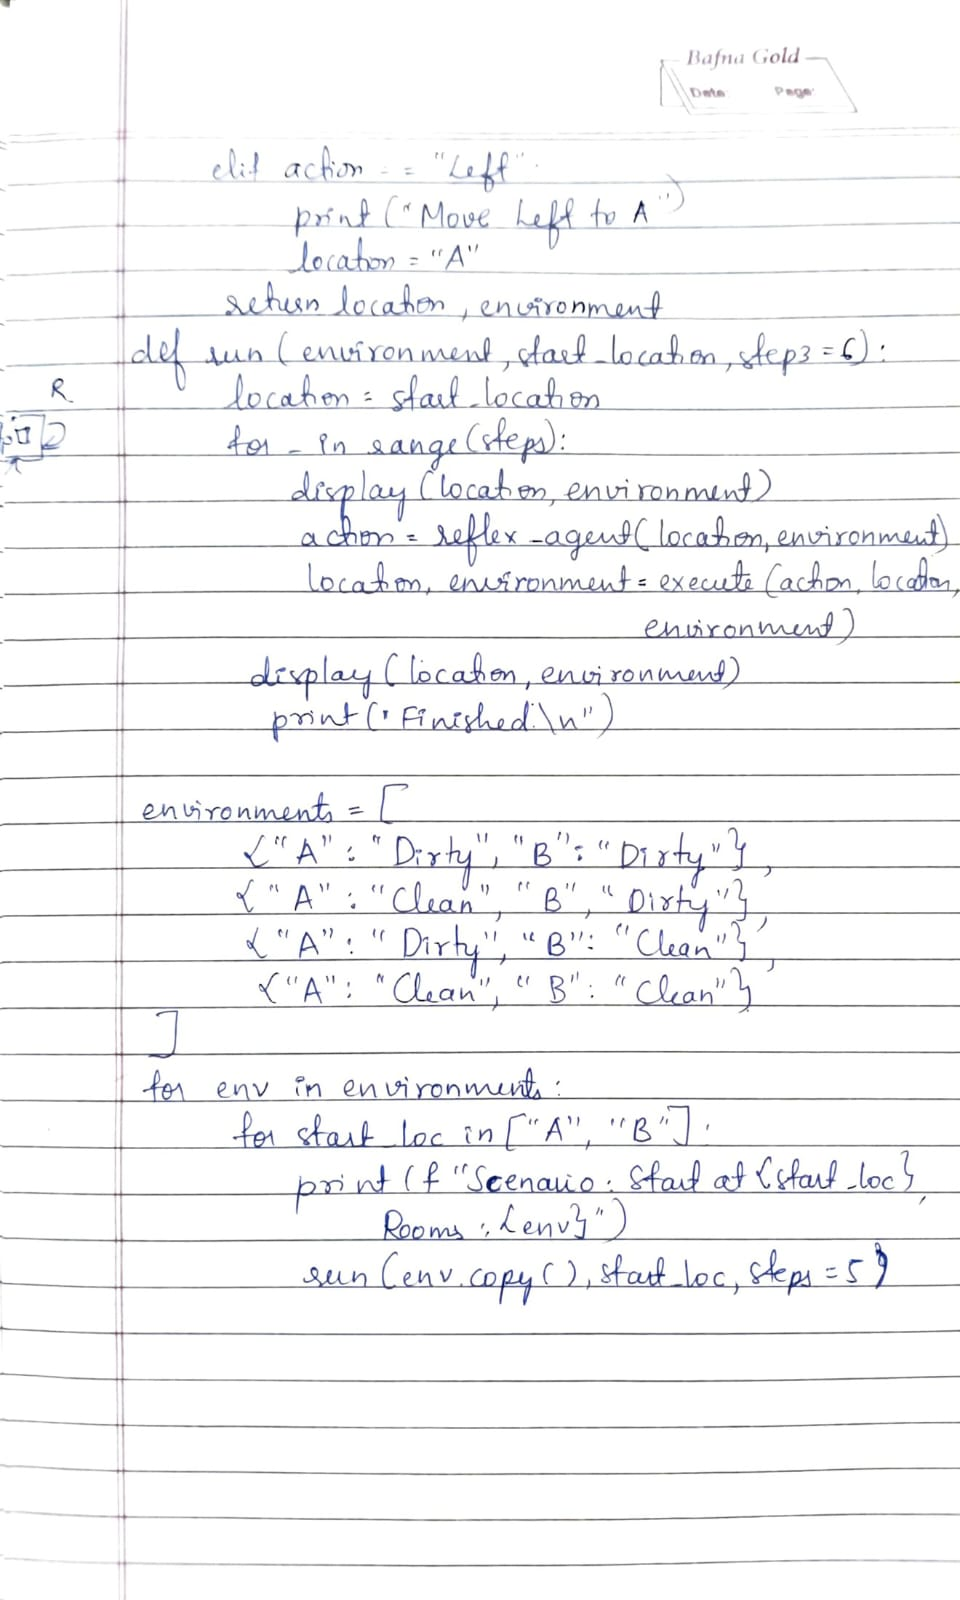 Bafna Gold
Date: Page:
elif action == "Left".
print ("Move Left to A")
location = "A"
return location, environment
def run (environment, start_location, steps = 6):
location = start_location
R
for _ in range (steps):
display (location, environment)
action = reflex_agent (location, environment)
location, environment = execute (action, location,
environment)
display (location, environment)
print (" Finished.\n")
environments = [
{"A" : "Dirty", "B" : "Dirty"},
{"A" : "Clean", "B", "Dirty"},
{"A" : "Dirty", "B" : "Clean"},
{"A" : "Clean", "B" : "Clean"}
]
for env in environments:
for start_loc in ["A", "B"].
print (f "Scenario : Start at {start_loc},
Rooms : {env}")
run (env.copy(), start_loc, steps = 5)